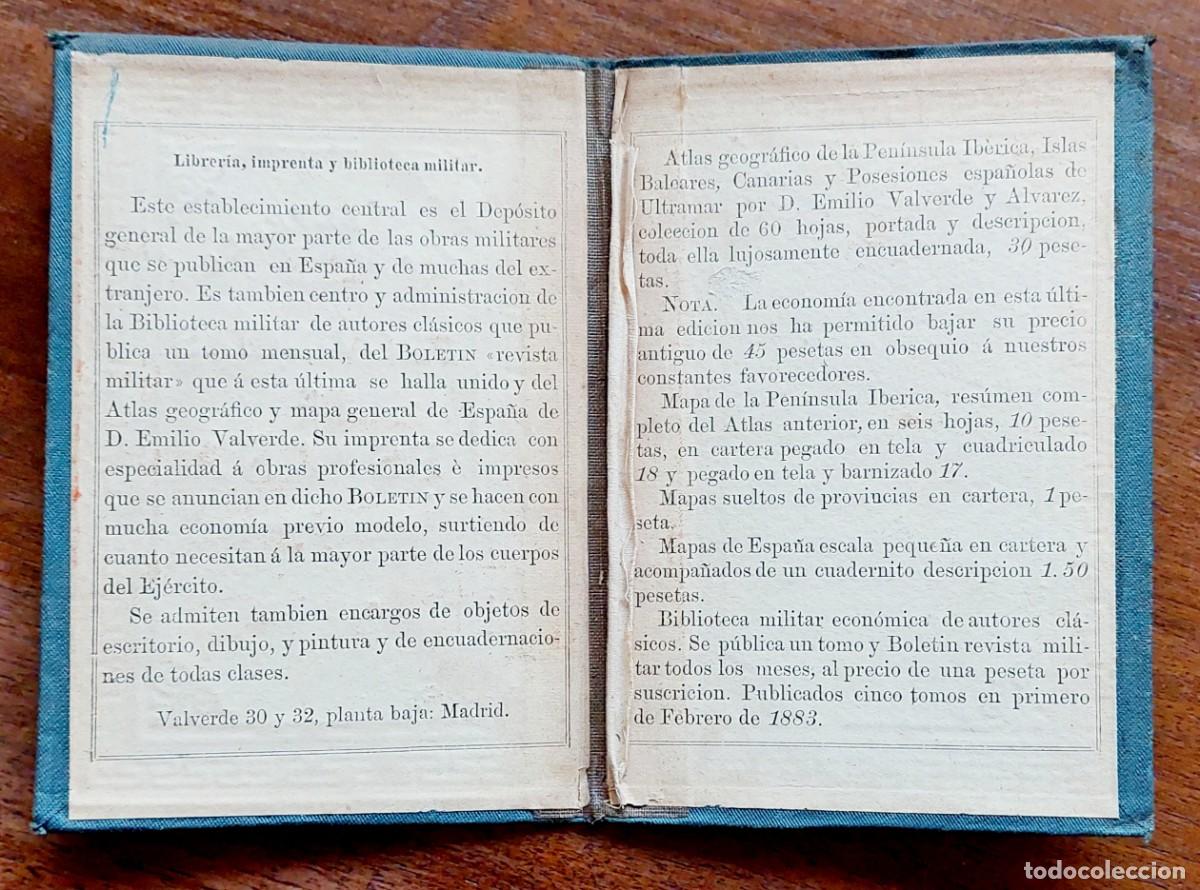 Librería, imprenta y biblioteca militar.
Este establecimiento central es el Depósito
general de la mayor parte de las obras militares
que se publican en España y de muchas del ex-
tranjero. Es tambien centro y administracion de
la Biblioteca militar de autores clásicos que pu-
blica un tomo mensual, del BOLETIN «revista
militar» que á esta última se halla unido y del
Atlas geográfico y mapa general de España de
D. Emilio Valverde. Su imprenta se dedica con
especialidad á obras profesionales è impresos
que se anuncian en dicho BOLETIN y se hacen con
mucha economía previo modelo, surtiendo de
cuanto necesitan á la mayor parte de los cuerpos
del Ejército.
Se admiten tambien encargos de objetos de
escritorio, dibujo, y pintura y de encuadernacio-
nes de todas clases.
Valverde 30 y 32, planta baja: Madrid.
Atlas geográfico de la Península Ibèrica, Islas
Baleares, Canarias y Posesiones españolas de
Ultramar por D. Emilio Valverde y Alvarez,
coleccion de 60 hojas, portada y descripcion,
toda ella lujosamente encuadernada, 30 pese-
tas.
NOTA. La economía encontrada en esta últi-
ma edicion nos ha permitido bajar su precio
antiguo de 45 pesetas en obsequio á nuestros
constantes favorecedores.
Mapa de la Península Iberica, resúmen com-
pleto del Atlas anterior, en seis hojas, 10 pese-
tas, en cartera pegado en tela y cuadriculado
18 y pegado en tela y barnizado 17.
Mapas sueltos de provincias en cartera, 1 pe-
seta.
Mapas de España escala pequeña en cartera y
acompañados de un cuadernito descripcion 1.50
pesetas.
Biblioteca militar económica de autores clá-
sicos. Se pública un tomo y Boletin revista mili-
tar todos los meses, al precio de una peseta por
suscricion. Publicados cinco tomos en primero
de Febrero de 1883.
todocoleccion